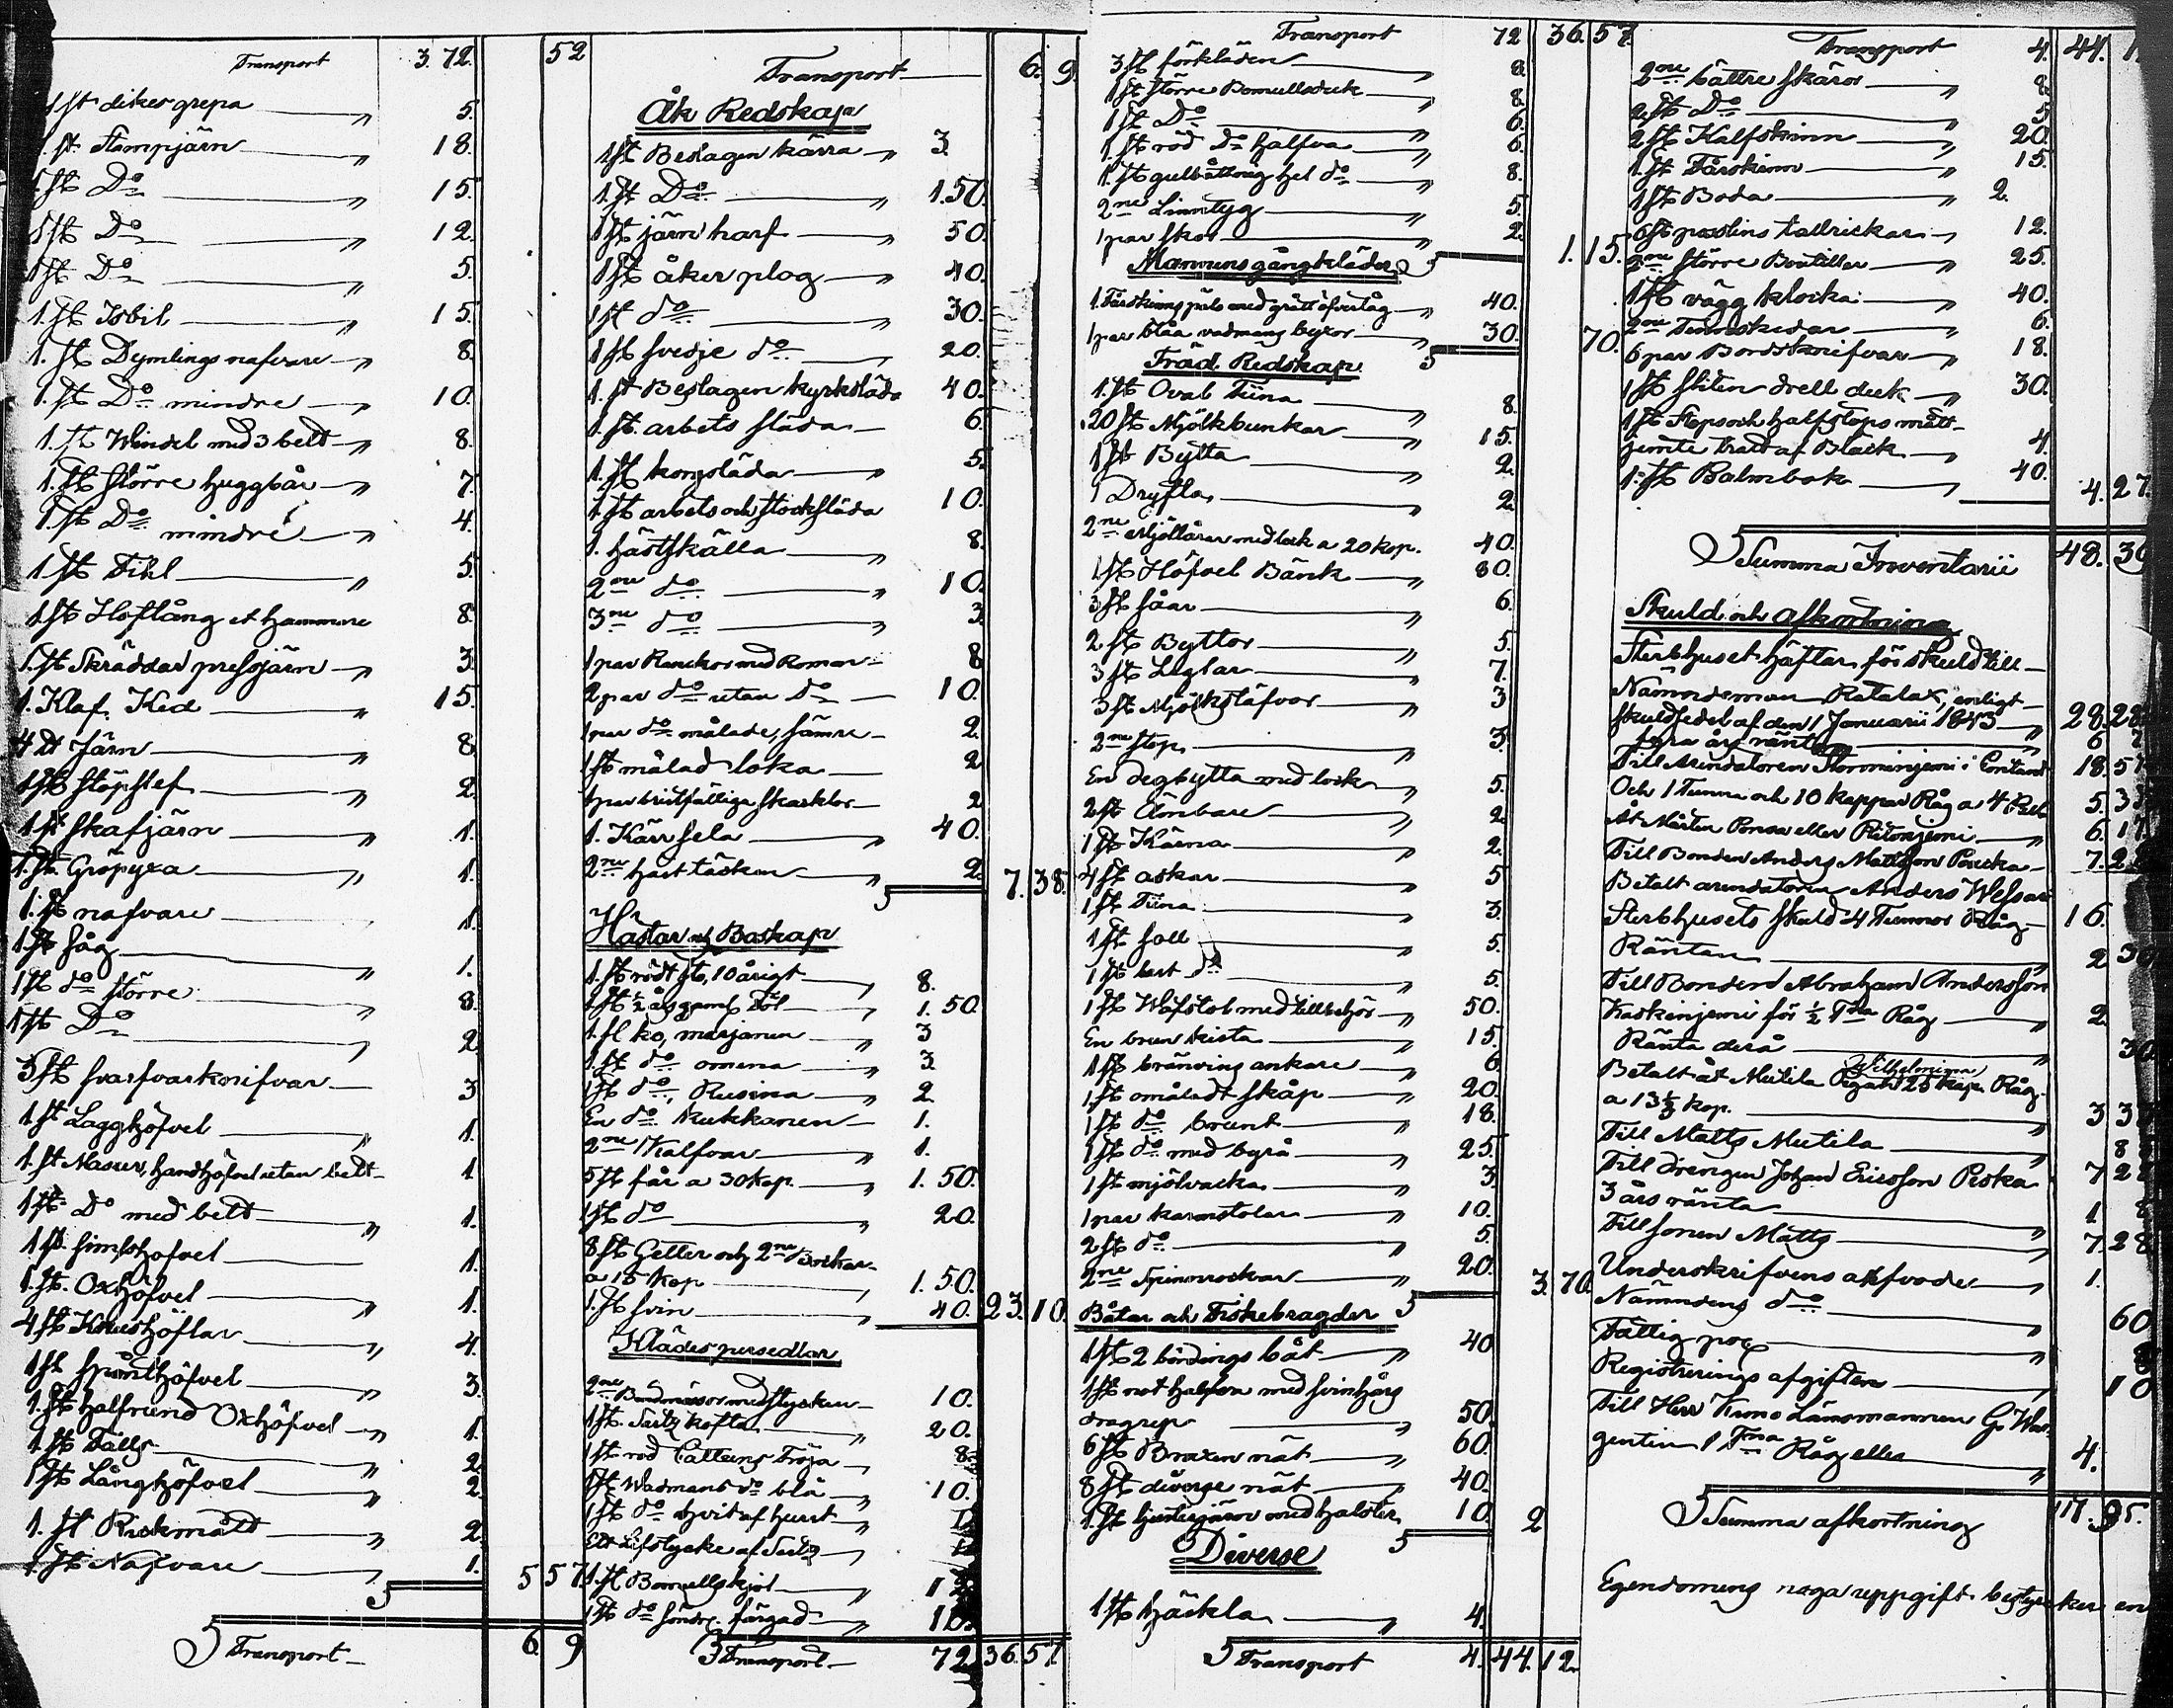 Transport 3. 72. 52
1 st dikes grepa " 5.
1 st. Stampjärn " 18.
1 st Do " 15.
1 st Do " 12.
1 st Do " 5.
1. st Isbil " 15.
1. st Dymlings nafvare " 8.
1. st Do mindre " 10.
1. st Windel med 3 bett " 8.
1. st Större huggbår " 7.
1. st Do mindre " 4.
1. st Fihl " 5.
1 st Hoftång et hammare 8.
1. st Skräddar pressjärn " 3.
1. Klaf. Ked " 15.
4 Järn " 8.
1 st Stöpslef " 2.
1 st Skafjärn " 1.
1. st. Gröpyxa " 1.
1. st nafvare 1.
1 st såg " 1.
1 st do större 8.
1 st Do " 2.
3 st svarfvarknifvar 3
1 st Lagghöfvel " 1.
1. st Masur, handhöfvel utan bett 1
1 st Do med bett " 1.
1 st. simshöfvel 1.
1. st. Oxhöfvel " 1.
4 st Kälishöflar " 4.
1 st spånthöfvel " 3.
1. st halfrund Oxhöfvel " 1.
1. st Fälls " 2
1 st Långhöfvel " 2.
1. st Rickmått " 2
1. st Nafvare 1. 5 57.
S Transport 6. 9
Transport 6. 9
Åk Redskap
1 st Beslagen kärra " 3.
1. st Do " 1.50.
1 st järn harf " 50.
1 st åker plog " 40.
1 st do " 30.
1 st svedje do " 20.
1. st Beslagen kyrksläda 40.
1. st. arbets släda 6.
1. st korgsläda " 5.
1. st arbets och stocksläda 10.
1. hästskälla " 8.
2ne do " 10.
3ne do " 3.
1 par Ranckor med Remar 8
2 par do utan do 10.
1 par do målade, sämre 2.
1 st målad loka 2
1 par bristfälliga skacklor 2
1. Kärr sela " 40.
2ne häst täcken " 2. 7. 38.
Hästar och Boskap
1. st rödt sto, 10 årigt " 8.
1 st ½ års gaml Föl " 1. 50.
1. st ko, marjanen " 3
1. st do omena " 3.
1 st do, Rusina " 2.
En do kukkanen 1.
2ne Kalfvar " 1.
5 st får a 30 kop. " 1. 50.
1 st do " 20.
8 st Getter och 2ne Bockar
a 15 kop " 1. 50.
1. st svin " 40. 23. 10.
Klädes persedlar
2ne Bindmössor med stycken 10.
1 st. Sartz kofta " 20.
1 st röd Cattuns Tröja " 8.
1 st Wadmans do blå " 10.
1 st do hvit af hurst "
Ett Lifstycke af Sartz "
1. st Bomullskjol " 12
1 st do söndr. färgad " 10.
S Transport 72 36. 57.
Transport 72 36. 57.
3 st förkläden " 8.
1 st större Bomullsduk " 8.
1 st Do " 6.
1. st röd do halfva " 6.
1. st gulbåttnig hel do " 8.
2ne Linntyg " 5.
1 par skor " 2. 1. 15.
Mannens gångkläder
1. Fårskinns päls med grått öfvertåg " 40.
1 par blåa vadmans byxor " 30. 70.
Träd Redskap
1. st Oval Tiina " 8.
20 st Mjölkbunkar " 15.
1 st Bytta " 2.
1 Dryfla " 2.
2ne Mjöllårar med lock a 20 kop. 40.
1 st Höfvel Bänk " 80.
3 st såar " 6.
2 st Byttor " 5.
3 st Leglar " 7.
3 st Mjölkstäfvor " 3
2ne stop " 3.
En degbytta med lock " 5.
2 st Ämbare " 2.
1 st Kärna " 2.
4 st askar " 5
1 st Tiina " 3.
1 st soll " 5.
1 st kast do " 5.
1 st Wäfstol med tillbehör " 50.
En brun kista " 15.
1 st bränvins ankare " 6.
1 st omåladt skåp " 20.
1 st do brunt " 18.
1 st do med byrå " 25.
1 st mjölvacka " 3.
1 par karmstolar " 10.
2 st do " 5.
2ne Spinnrockar " 20. 3. 70.
Båtar och Fiskebragder
1 st 2 bördings båt " 40
1 st not halfva med svinhårs
dragrep " 50.
6 st Braxen nät " 60.
8 st diverse nät " 40.
1. st ljusterjärn med halster 10. 2
Diverse
1 st häckla " 4.
S Transport 4. 44. 12.
Transport 4. 44. 1
2ne bättre skäror " 8.
2 st Do " 5
2 st Kalfskinn " 20.
1. st Fårskinn " 15.
1 st Boda " 2.
6 st postlins tallrickar " 12.
2ne större Boutiller " 25.
1 st vägg klocka " 40.
2ne Tennskedar " 6.
6 par Bordsknifvar " 18.
1 st sliten drell duk " 30.
1 st Stops och halfstops mått
jemte tratt af Bläck 4.
1. st Psalmbok 40. 4. 27.
S Summa Inventarii 48. 39
Skuld och afkortning
Sterbhuset häftar för skuld till
Nämndeman Ratala, enligt
skuldsedel af den 1 Januarii 1843 " 28. 28
fyra års ränta " 6
Till Arrendatoren Storminjemi i Contant 18. 57
Och 1 Tunna och 10 kappar Råg a 4 Rub 5. 33
Åt Mårten Ponsa eller Ritonjemi " 6. 17.
Till Bonden Anders Mattsson Poucka 7. 2
Betalt arrendatoren Anders Wessari
Sterbhusets skuld 4 Tunnor Råg 16.
Räntan " 2 30
Till Bonden Abraham Andersson
Kaskinjemi för ½ Tna Råg " 2.
Ränta derå " 30
Betalt åt Mutila Pigan Wilhelmina 25 kap. Råg
a 13⅓ kop. " 3 33
Till Matts Mutila " 8
Till drengen Johan Ericsson Piska 7 28
3 års ränta " 1
Till sonen Matts " 7. 28
Underskrifvens arfvode " 1.
Nämndens do " 60
Fattig proc "
Registrerings afgiften " 10
Till Herr Krono Länsmannen G. War-
gentin 1 Tna Råg eller " 4.
S Summa afkortning 117. 95.
Egendomens noga uppgift bestyrker